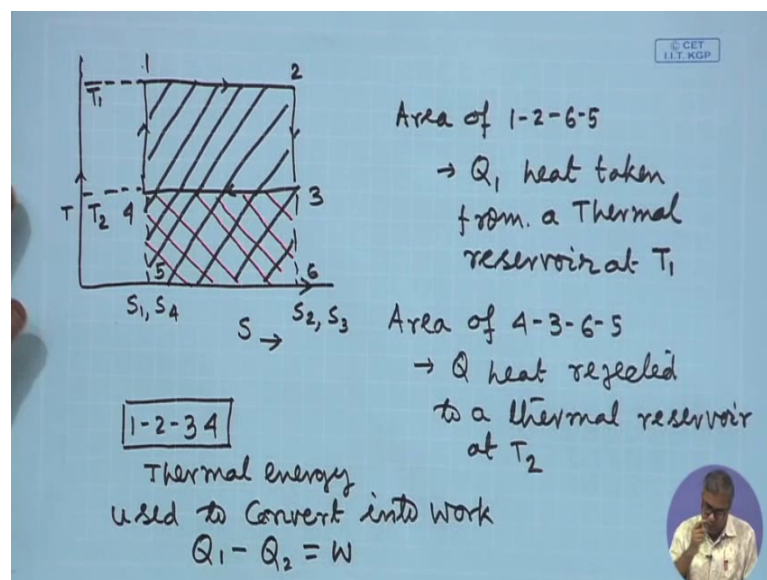 © CET
I.I.T. KGP
1
2
T₁
T
T₂
4
3
5
6
S₁, S₄
S →
S₂, S₃
Area of 1-2-6-5
→ Q₁ heat taken
from. a Thermal
reservoir at T₁
Area of 4-3-6-5
→ Q heat rejected
to a thermal reservoir
at T₂
1-2-3 4
Thermal energy
used to convert into work
Q₁ - Q₂ = W